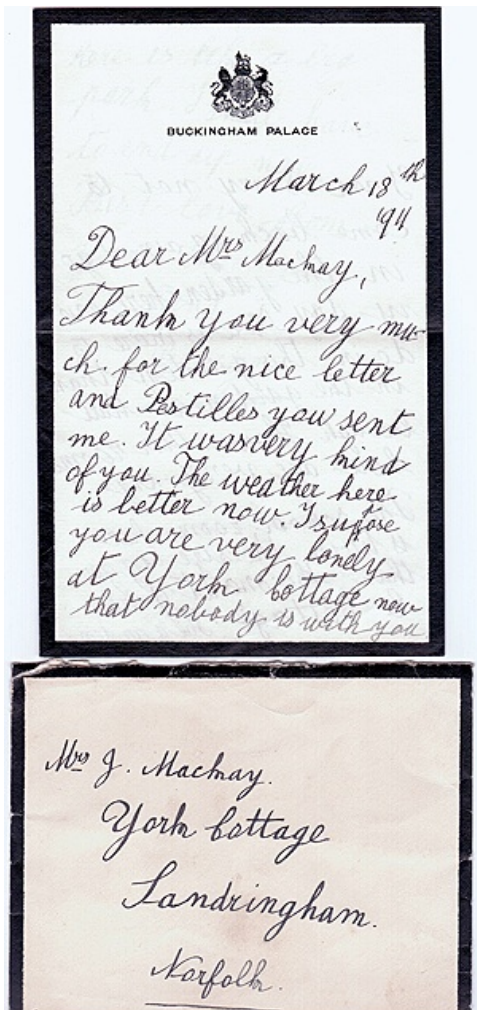 BUCKINGHAM PALACE
March 18th
1911
Dear Mrs Mackay,
Thank you very mu-
ch. for the nice letter
and Pestilles you sent
me. It was very kind
of you. The weather here
is better now I suppose
you are very lonely
at York Cottage now
that nobody is with you
Mrs J. Mackay.
York Cottage
Sandringham.
Norfolk.